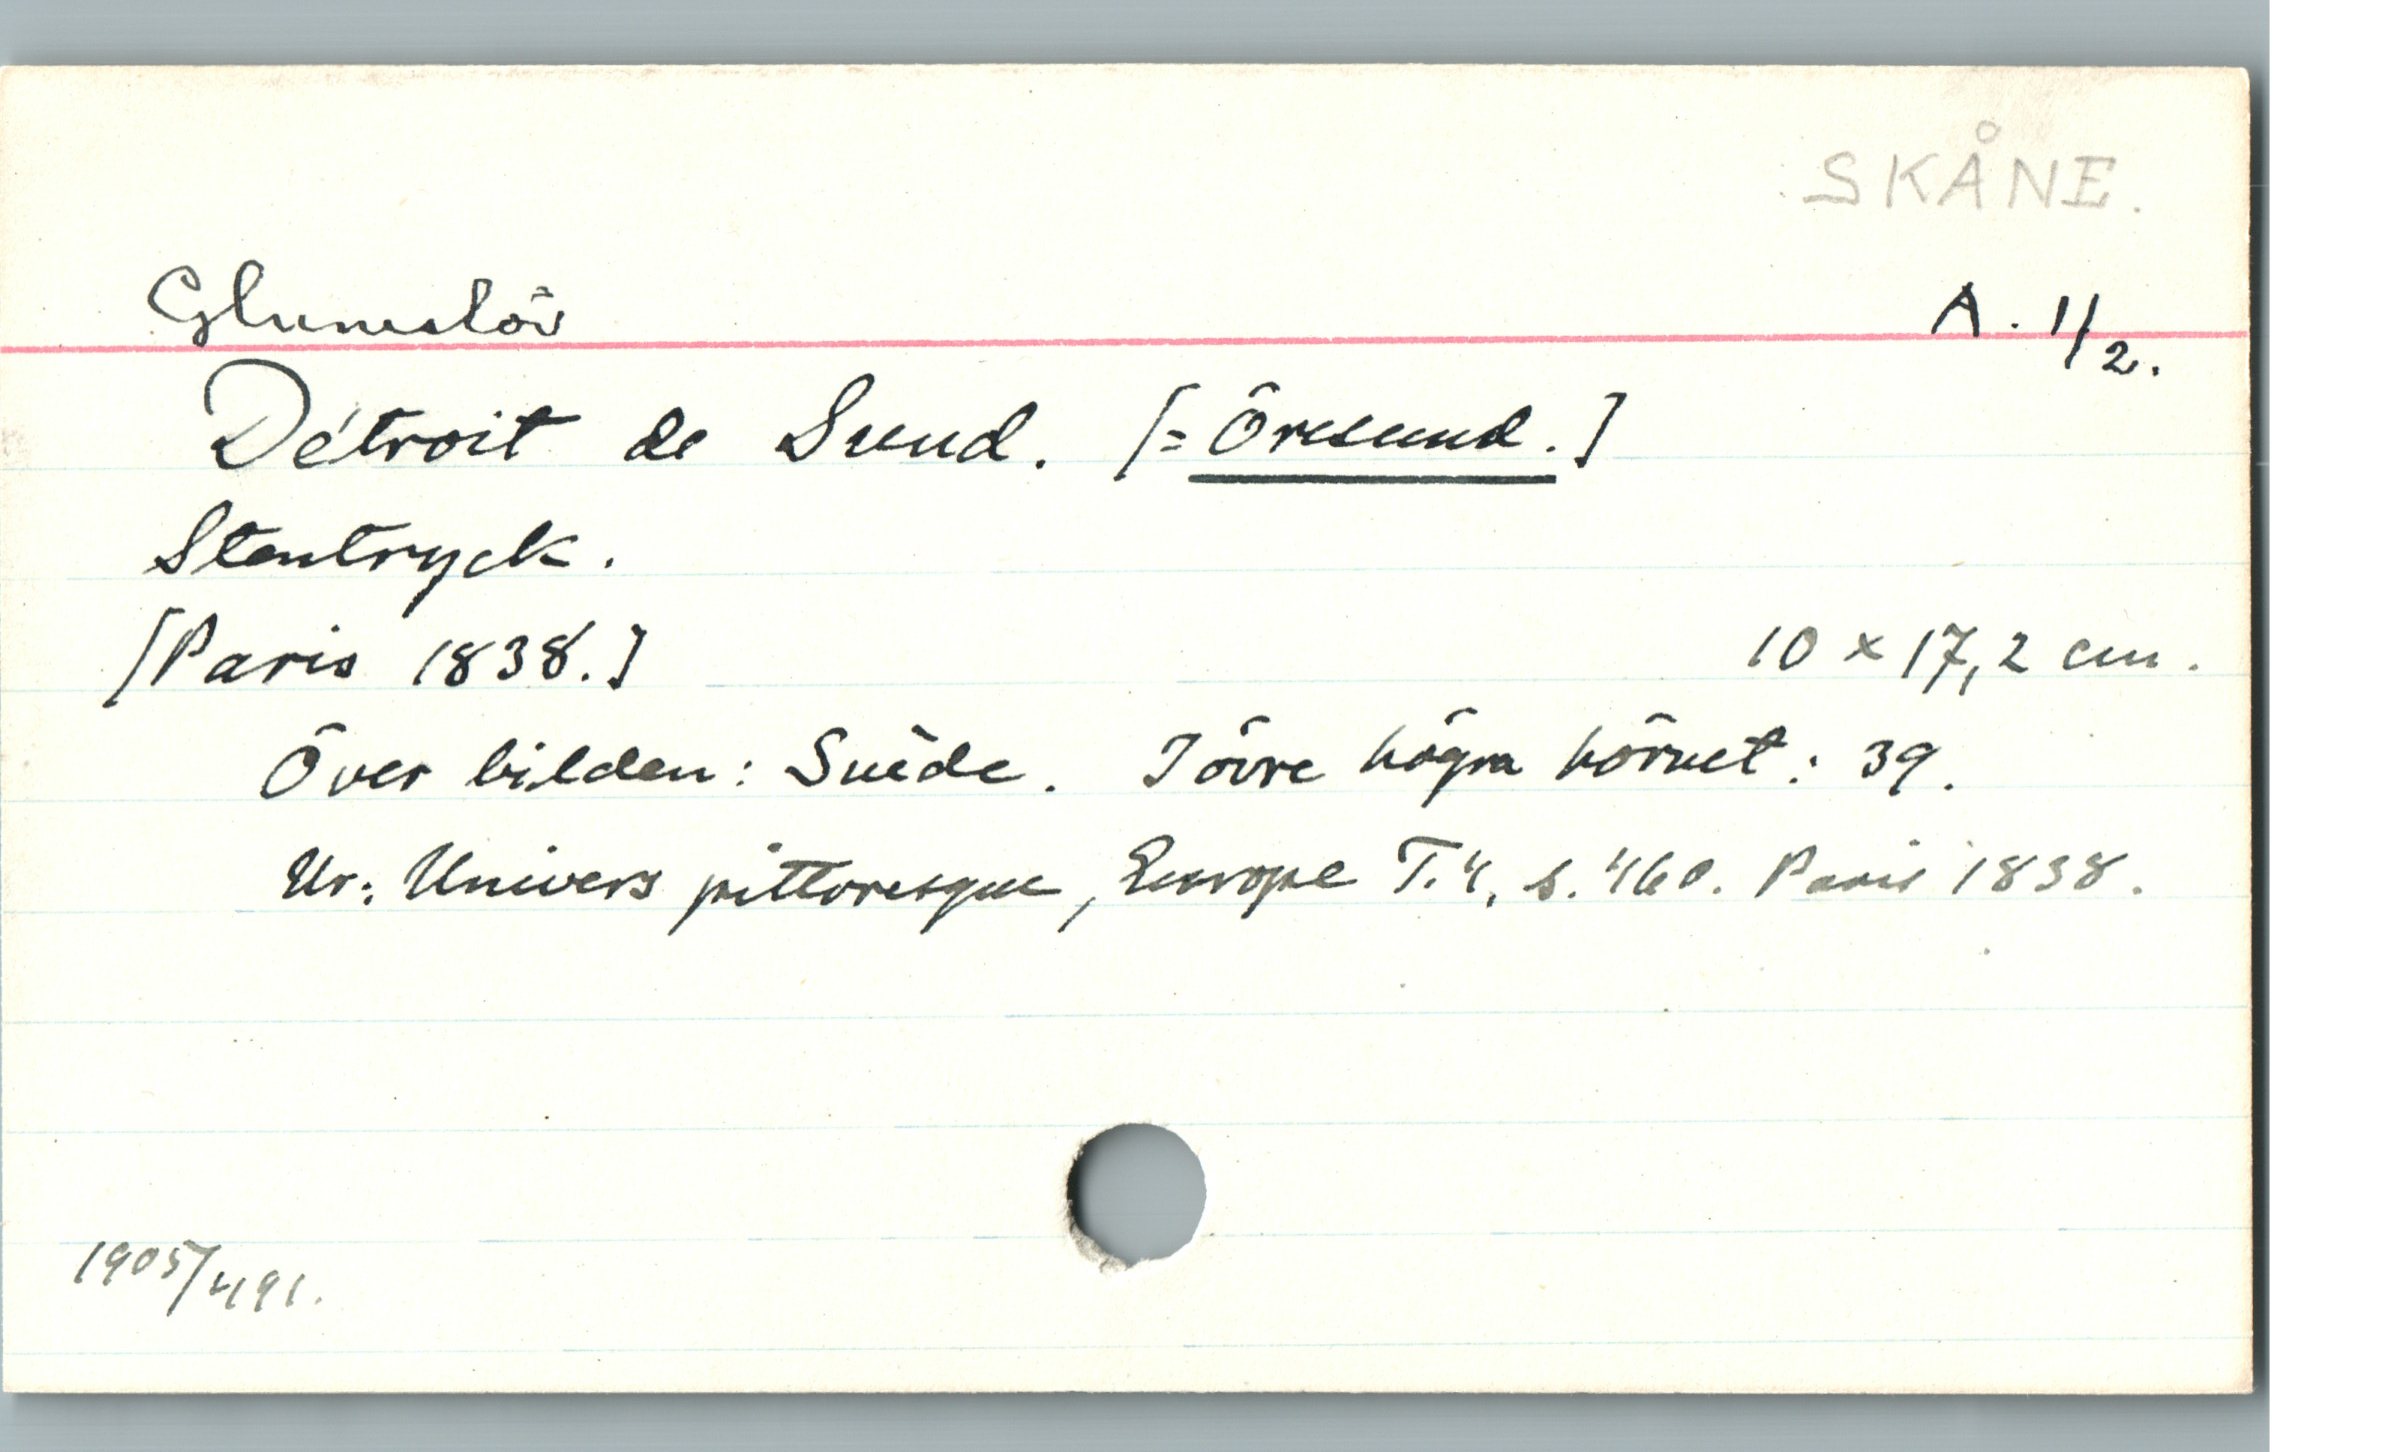 SKÅNE.
Glumslöv A. 1/2.
Détroit de Sund. [= Öresund.]
Stentryck.
[Paris 1838.] 10 x 17,2 cm.
Över bilden: Suède. I övre högra hörnet: 39.
Ur: Univers pittoresque, Europe T.4, s. 460. Paris 1838.
1905/491.